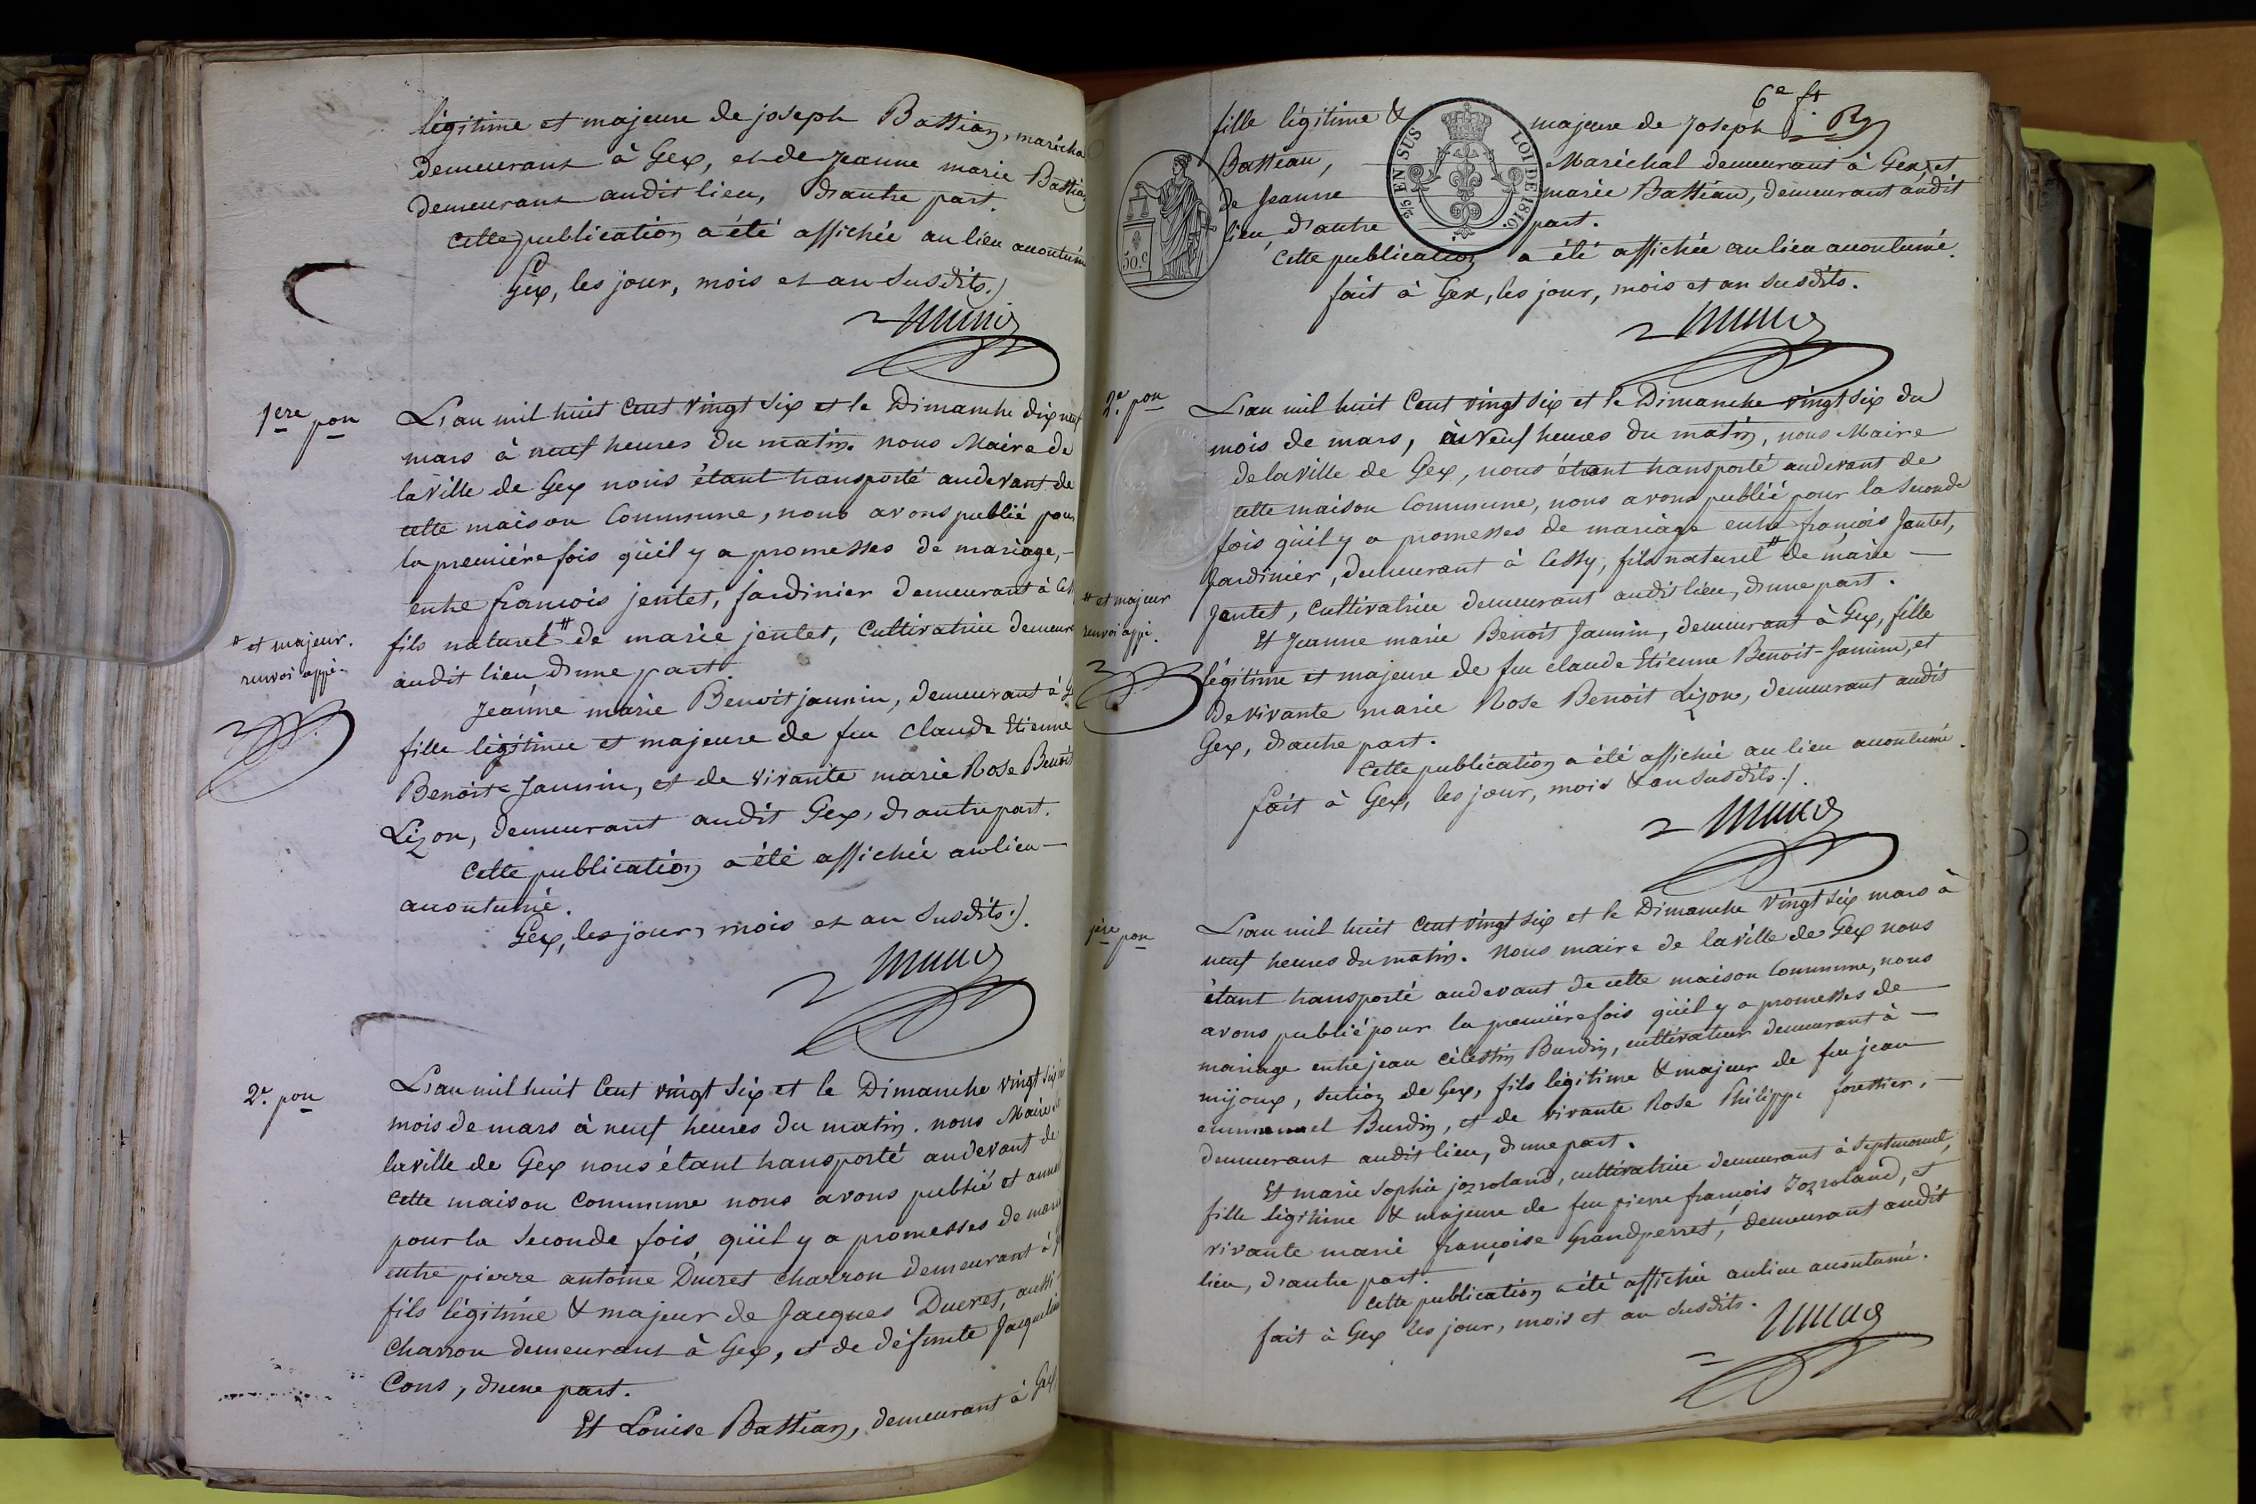 légitime et majeure de joseph Bastian, marécha
demeurant à Gex, et de Jeanne marie Bastian
demeurant audit lieu, d'autre part.
cette publication a été affichée au lieu accoutumé
Gex, les jour, mois et an susdits./
1ere pon
L'an mil huit cent vingt six et le Dimanche dix neuf
mars à neuf heures du matin. nous Maire de
la ville de Gex nous étant transporté audevant de
cette maison Commune, nous avons publié pour
la première fois qu'il y a promesses de mariage, -
entre francois jentet, jardinier demeurant à Cess
fils naturel # de marie jentet, Cultivatrice demeura
# et majeur.
renvoi appé.
audit lieu d'une part.
Jeanne marie Benoit jannin, demeurant à G
fille légitime et majeure de feu Claude Etienne
Benoit-Jannin, et de vivante marie Rose Benoit
Lizon, demeurant audit Gex, d'autre part.
Cette publication a été affichée au lieu -
accoutumé.
Gex, les jour, mois et an susdits./.
2e pon
L'an mil huit Cent vingt six et le Dimanche vingt six du
mois de mars à neuf heures du matin. nous Maire de
la ville de Gex nous étant transporté audevant de
cette maison Commune nous avons publié et annon
pour la seconde fois, qu'il y a promesses de maria
entre pierre antoine Ducret Charron demeurant à G
fils légitime & majeur de Jacques Ducret, aussi
Charron demeurant à Gex, et de défunte Jacqueline
Cons, d'une part.
Et Louise Bastian, demeurant à Gex
6e ft.
fille légitime & majeure de Joseph
Bastian, Maréchal demeurant à Gex, et
de Jeanne marie Bastian, demeurant audit
lieu, d'autre part.
2/5 EN SUS LOI DE 1816.
50.c
Cette publication a été affichée au lieu accoutumé.
fait à Gex, les jour, mois et an susdits.
2e pon
L'an mil huit Cent vingt six et le Dimanche vingt six du
mois de mars, à neuf heures du matin, nous Maire
de la ville de Gex, nous étant transporté audevant de
cette maison Commune, nous avons publié pour la seconde
fois qu'il y a promesses de mariage entre françois Jantet,
Jardinier, demeurant à Cessy, fils naturel # de marie -
# et majeur
renvoi appé.
Jantet, Cultivatrice demeurant audit lieu, d'une part.
Et Jeanne marie Benoit Jannin, demeurant à Gex, fille
légitime et majeure de feu claude Etienne Benoit-Jannin, et
de vivante marie Rose Benoit Lizon, demeurant audit
Gex, d'autre part.
Cette publication a été affichée au lieu accoutumé.
fait à Gex, les jour, mois & an susdits./.
1ère pon
L'an mil huit Cent vingt six et le Dimanche vingt six mars à
neuf heures du matin. Nous maire de la ville de Gex nous
étant transporté audevant de cette maison Commune, nous
avons publié pour la première fois qu'il y a promesses de
mariage entre jean célestin Burdin, cultivateur demeurant à -
mijoux, section de Gex, fils légitime & majeur de feu jean
emmanuel Burdin, et de vivante Rose Philippe forestier, -
demeurant audit lieu, d'une part.
Et marie Sophie jozroland, cultivatrice demeurant à Septmoncel,
fille légitime & majeure de feu pierre françois Jozroland, et
vivante marie françoise Grandperret, demeurant audit
lieu, d'autre part.
Cette publication a été affichée au lieu accoutumé.
fait à Gex les jour, mois et an susdits.